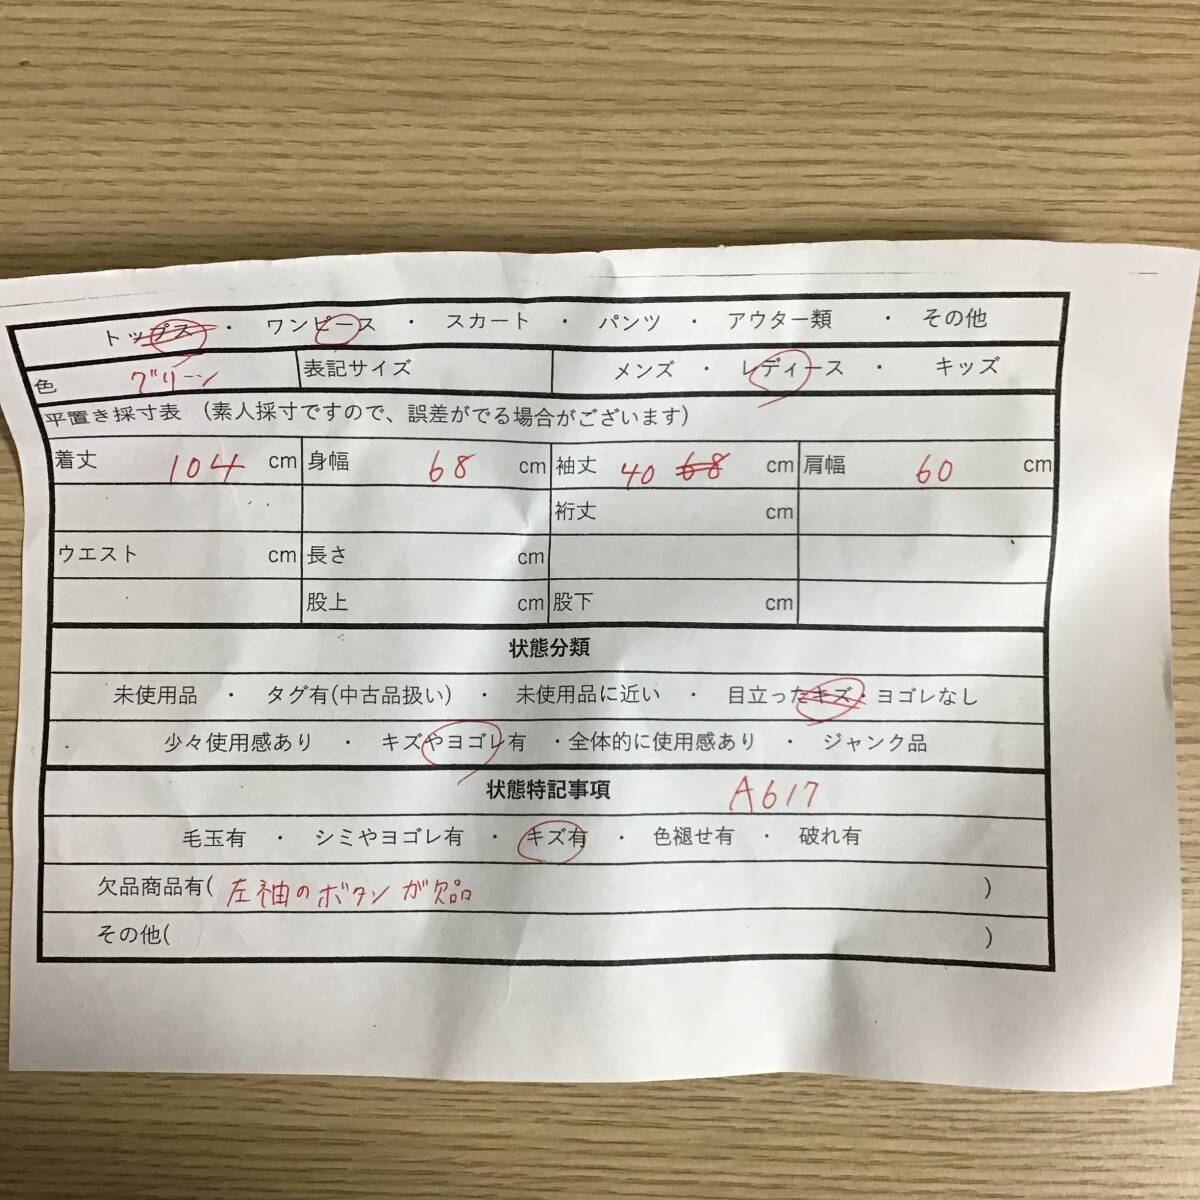 トップス ・ ワンピース ・ スカート ・ パンツ ・ アウター類 ・ その他
色 グリーン 表記サイズ メンズ ・ レディース ・ キッズ
平置き採寸表 (素人採寸ですので、誤差がでる場合がございます)
着丈 104 cm 身幅 68 cm 袖丈 40 68 cm 肩幅 60 cm
裄丈 cm
ウエスト cm 長さ cm
股上 cm 股下 cm
状態分類
未使用品 ・ タグ有(中古品扱い) ・ 未使用品に近い ・ 目立ったキズ・ヨゴレなし
少々使用感あり ・ キズやヨゴレ有 ・全体的に使用感あり ・ ジャンク品
状態特記事項 A617
毛玉有 ・ シミやヨゴレ有 ・ キズ有 ・ 色褪せ有 ・ 破れ有
欠品商品有( 左袖のボタンが欠品 )
その他( )